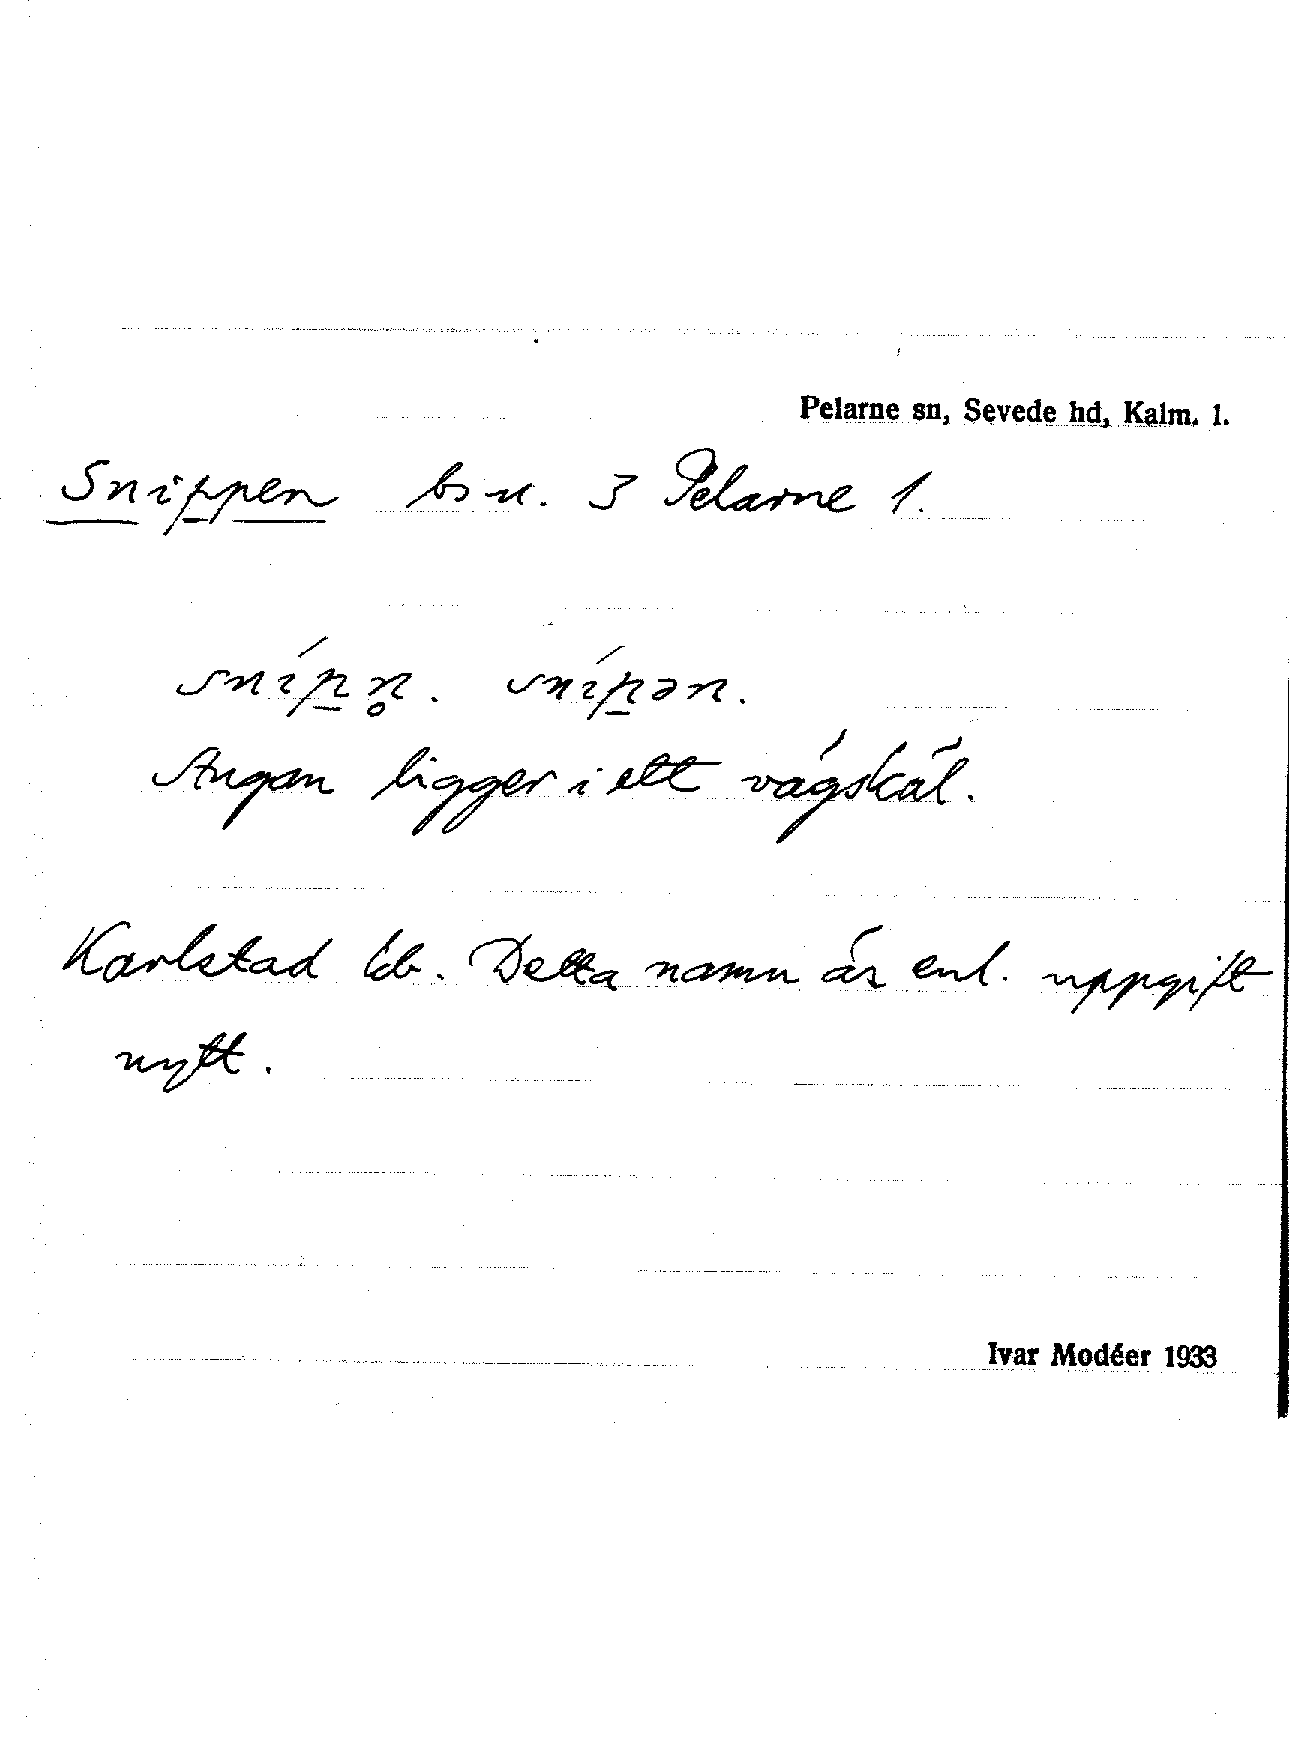 Pelarne sn, Sevede hd, Kalm. l.
Snippen bs u. 3 Pelarne 1.
snípn̥. snípən.
Stugan ligger i ett vägskäl.
Karlstad Eb. Detta namn är enl. uppgift
nytt.
Ivar Modéer 1933